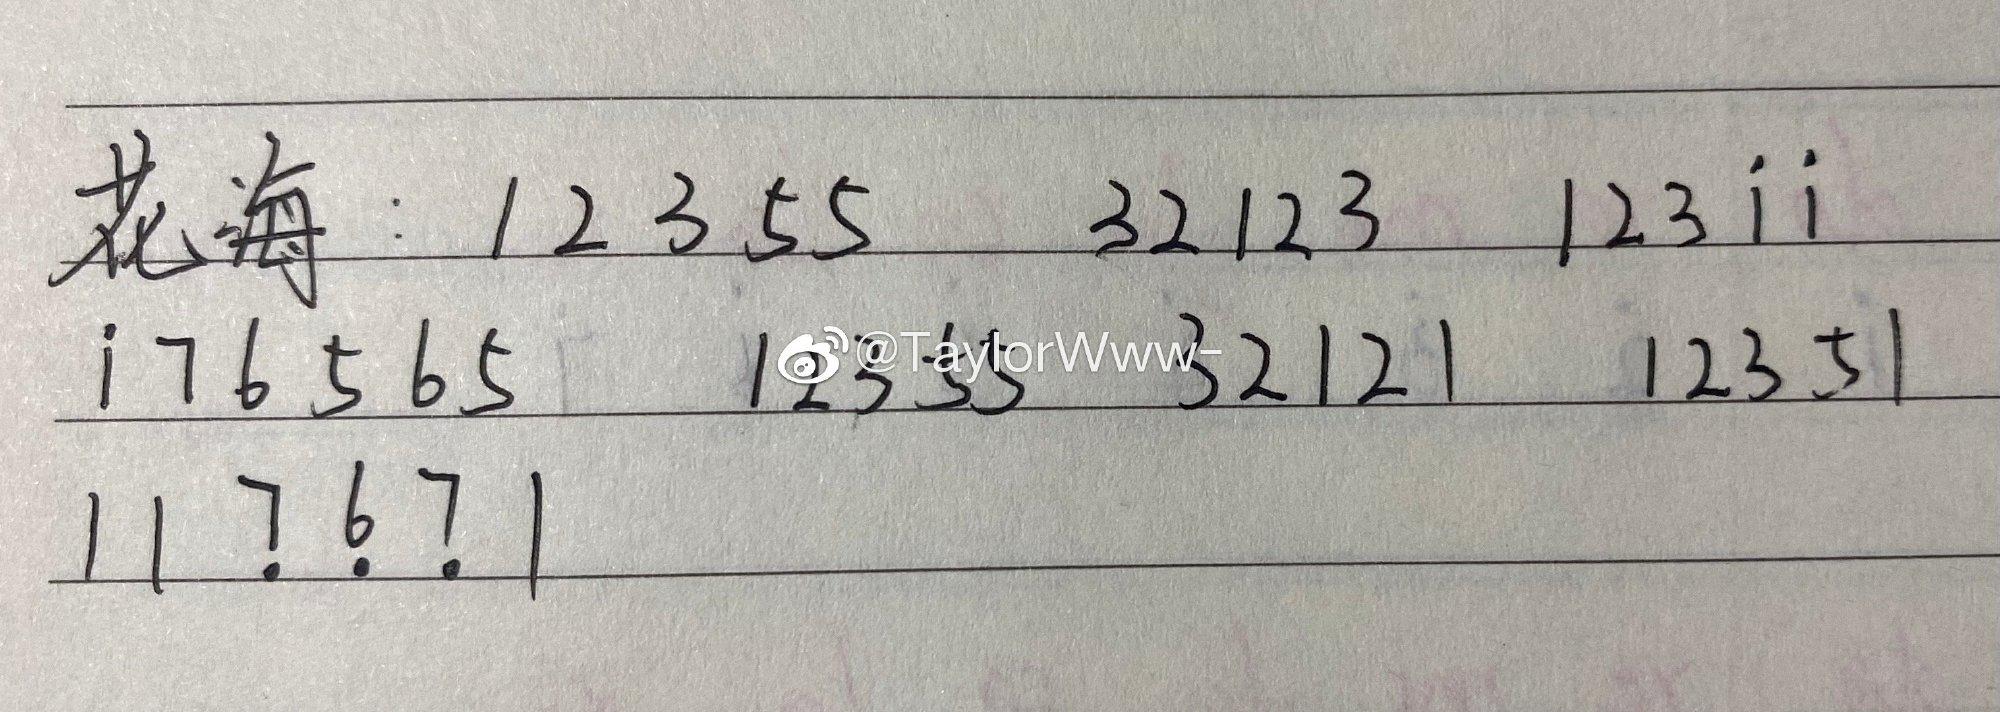 花海：12355 32123 123i̇i̇
i̇76565 12355 32121 12351
117̣6̣7̣1
@TaylorWww-